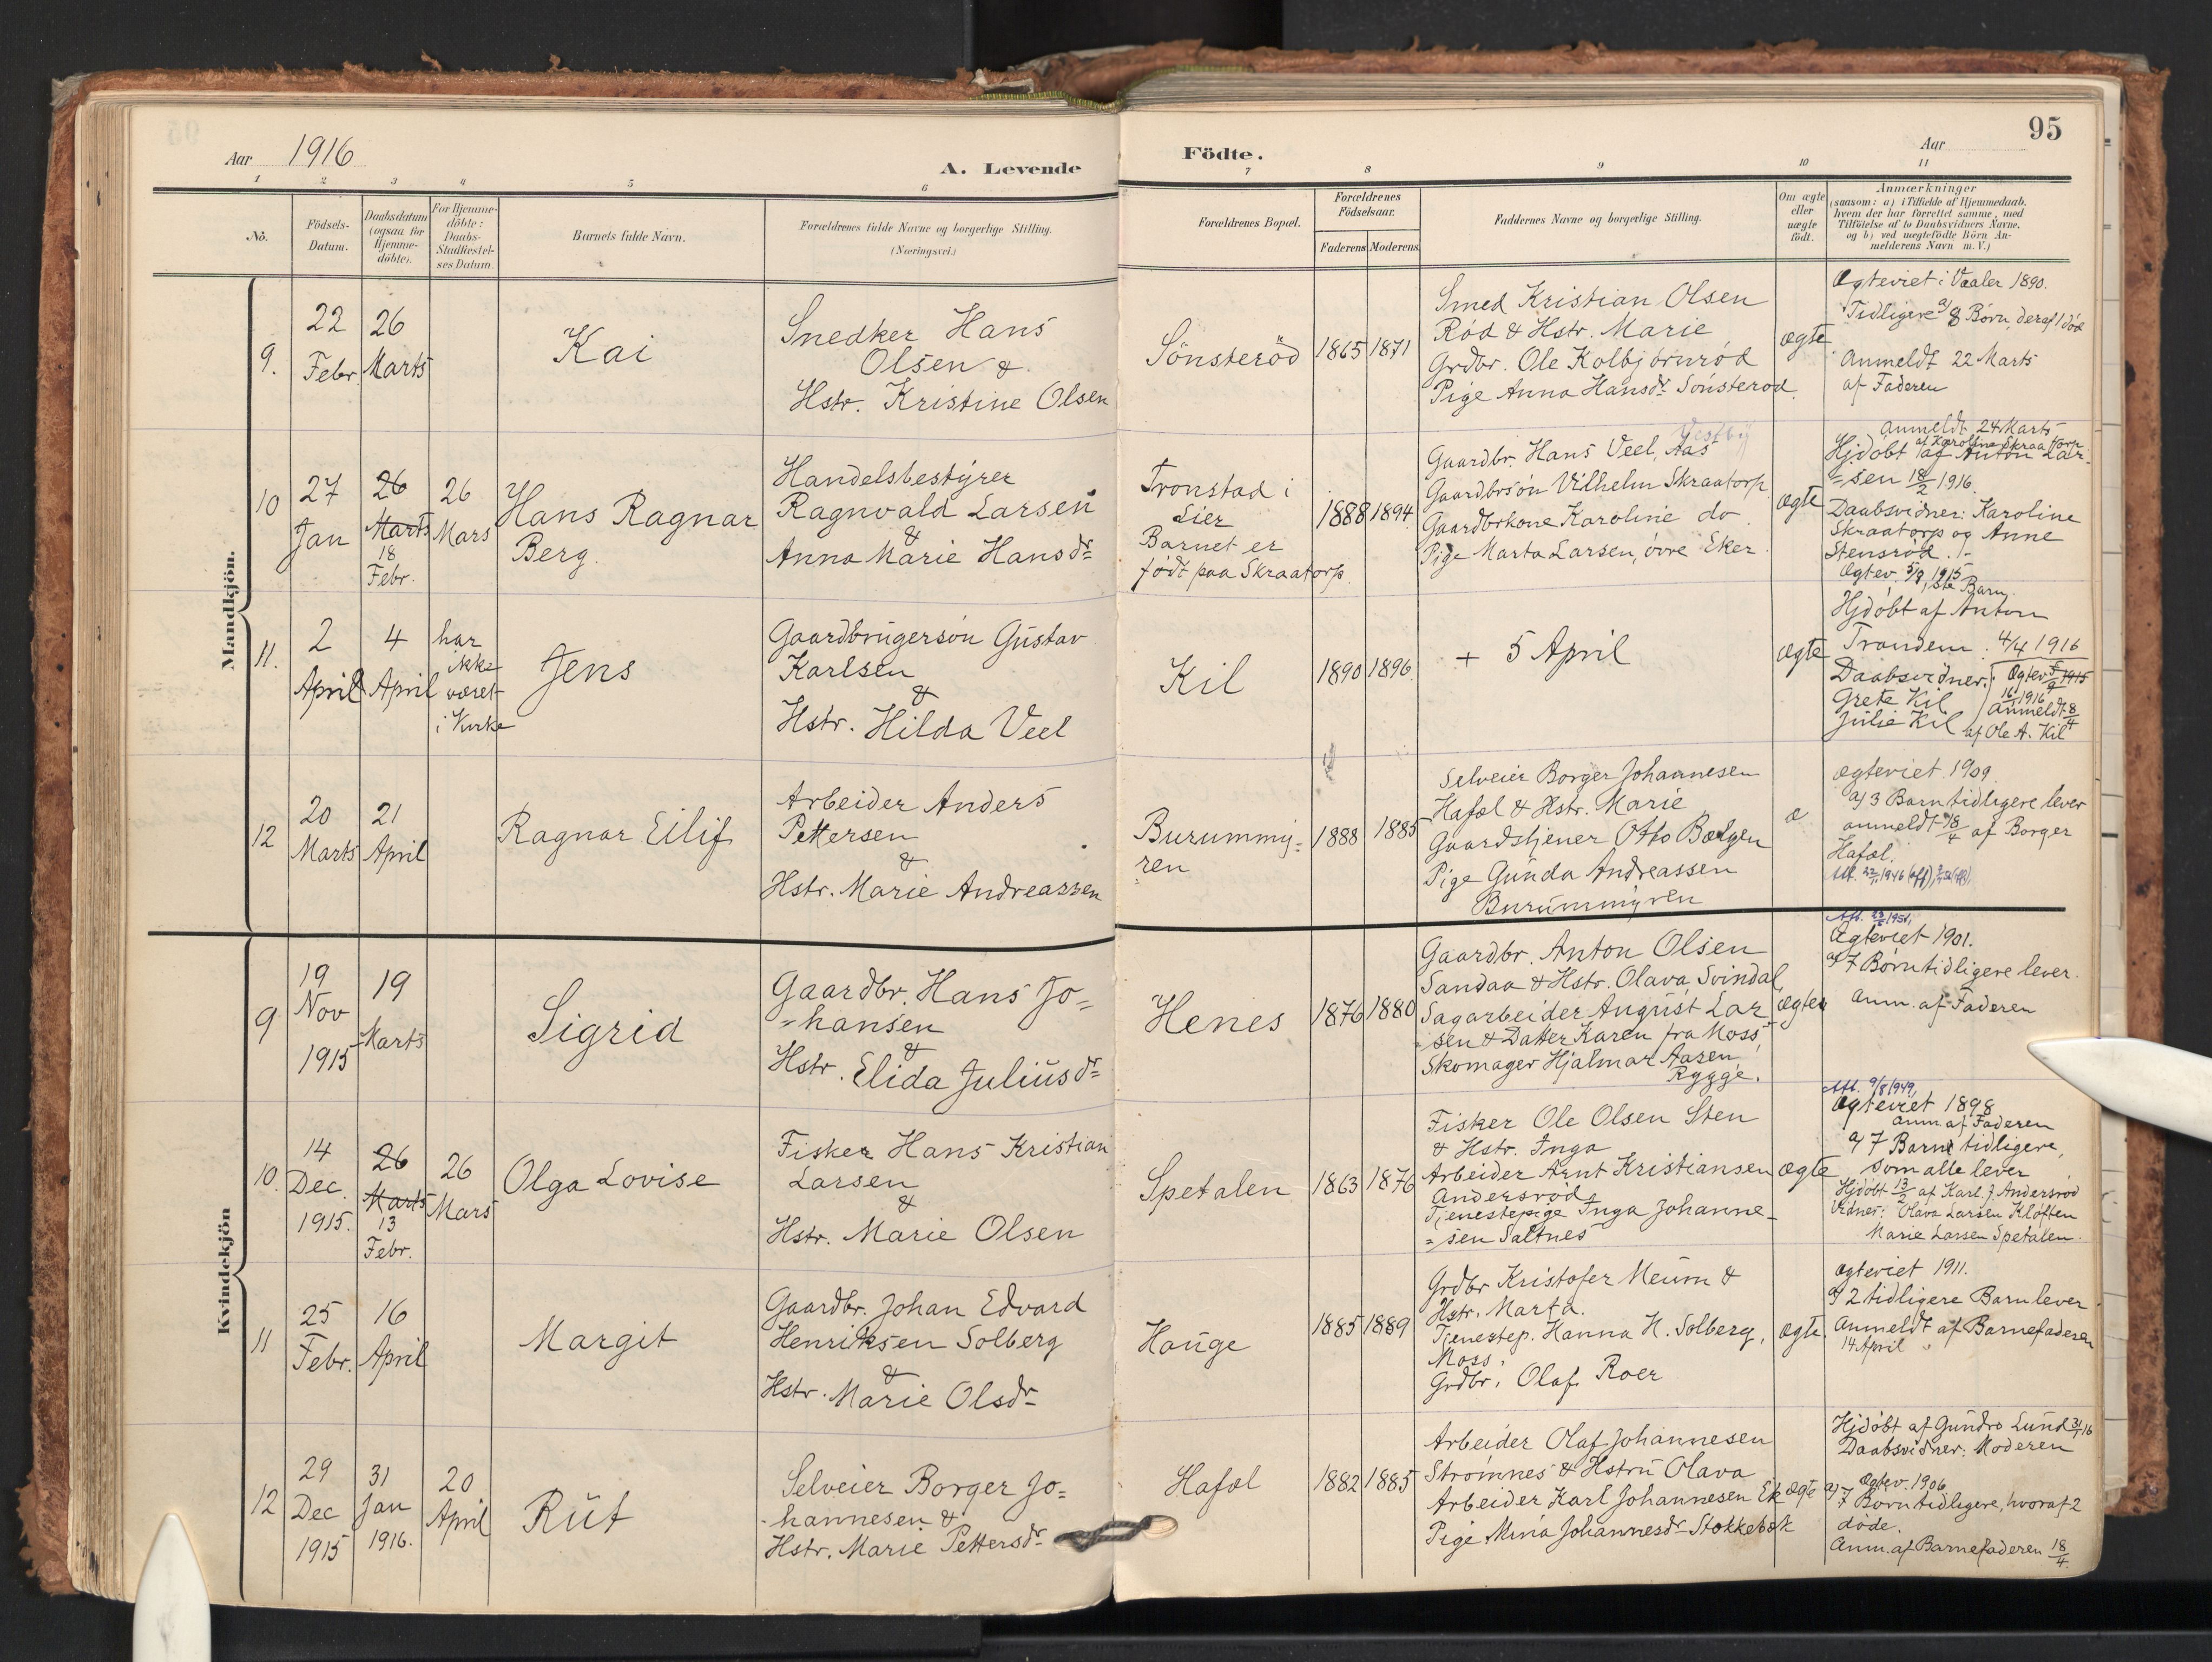 95
Aar 1916
A. Levende
Födte.
Aar
1 2 3 4 5 6 7 8 9 10 11
No.
Födsels-
Datum.
Daabsdatum
(ogsaa for
Hjemme-
döbte).
For Hjemme-
döbte:
Daabs-
Stadfæstel-
ses Datum.
Barnets fulde Navn.
Forældrenes fulde Navne og borgerlige Stilling.
(Næringsvei.)
Forældrenes Bopæl.
Forældrenes
Födselsaar.
Faderens Moderens
Faddernes Navne og borgerlige Stilling.
Om ægte
eller
uægte
födt.
Anmærkninger
(saasom: a) i Tilfælde af Hjemmedaab.
hvem der har forrettet samme, med
Tilföielse af to Daabsvidners Navne.
og b) ved uægtefödte Börn An-
melderens Navn m. V.)
Mandkjön.
9.
22
Febr
26
Marts
Kai
Snedker Hans
Olsen &
Hstr. Kristine Olsen
Sönsteröd
1865
1871
Smed Kristian Olsen
Röd & Hstr. Marie
Grdbr. Ole Kolbjörnröd
Pige Anna Hansdr Sönsteröd.
ægte
Ægteviet i Vaaler 1890.
Tidligere a/ 8 Börn, deraf 1 död
Anmeldt 22 Marts
af Faderen
10
27
Jan
26
Marts
18
Febr.
26
Mars
Hans Ragnar
Berg.
Handelsbestÿrer
Ragnvald Larsen
&
Anna Marie Hansdr
Tronstad i
Lier
Barnet er
født paa Skraatorp.
1888
1894
Vestbÿ
Gaardbr. Hans Veel, Aas
Gaardbrsön Vilhelm Skraatorp
Gaardbrkone Karoline do
Pige Marta Larsen, övre Eker.
ægte
Anmeldt 24 Marts
af Karoline Skraatorp
Hjdöbt af Anton Lar-
=sen 18/2 1916.
Daabsvidner: Karoline
Skraatorp og Anne
Stensröd.
Ægtev. 5/9 1915
1ste Barn.
11.
2
April
4
April
har
ikke
været
i Kirke
Jens
Gaardbrugersön Gustav
Karlsen
&
Hstr. Hilda Veel
Kil
1890
1896.
+ 5 April
ægte
Hjdöbt af Anton
Trondem. 4/4 1916
Daabsvidner:
Grete Kil
Julie Kil
Ægtev 5/9 1915
16/1 1916
Anmeldt 8/4
af Ole A. Kil
12
20
Marts
21
April
Ragnar Eilif
Arbeider Anders
Pettersen
&
Hstr. Marie Andreassen
Burummÿ=
ren
1888
1885
Selveier Borger Johannesen
Hafæl & Hstr. Marie
Gaardstjener Otto Bælgen
Pige Gunda Andreassen
Burummÿren
æ
Ægteviet 1909.
a/ 3 Barn tidligere lever
anmeldt 18/4 af Borger
Hafæl.
Kvindekjön
9
19
Nov
1915
19
Marts
Sigrid
Gaardbr. Hans Jo=
=hansen
&
Hstr. Elida Juliusdr
Henes
1876
1880
Gaardbr. Anton Olsen
Sandaa & Hstr. Olava, Svindal,
Sagarbeider August Lar
sen & Datter Karen fra Moss
Skomager Hjalmar Aasen,
Rygge.
Att. 23/ 1951,
Ægteviet 1901.
a/ 7 Börn tidligere lever.
Anm. af Faderen
10.
14
Dec.
1915.
26
Marts
13
Febr.
26
Mars
Olga Lovise
Fisker Hans Kristian
Larsen
&
Hstr. Marie Olsen
Spetalen
1863
1876
Fisker Ole Olsen Sten
& Hstr. Inga
Arbeider Arnt Kristiansen
Andersröd
Tjenestepige Inga Johanne-
=sen Saltnes
ægte
Att. 9/8 1949,
Ægteviet 1898
anm af Faderen
a/ 7 Barn tidligere,
som alle lever
Hjdöbt 13/2 af Karl. J. Andersröd
Vidner: Olava Larsen Klöften
Marie Larsen Spetalen.
11
25
Febr.
16
April
Margit
Gaardbr. Johan Edvard
Henriksen Solberg
&
Hstr. Marie Olsdr
Hauge
1885
1889
Grdbr Kristofer Meum &
Hstr. Marta.
Tjenestep. Hanna H. Solberg,
Moss.
Grdbr. Olaf Roer
ægte.
Ægteviet 1911.
a/ 2 tidligere Barn lever.
Anmeldt af Barnefaderen
14 April
12
29
Dec
1915
31
Jan
1916.
20
April
Rut
Selveier Borger Jo=
hannesen &
Hstr. Marie Pettersdr
Hafæl
1882
1885
Arbeider Olaf Johannesen
Strömnes & Hstru Olava
Arbeider Karl Johannesen Ek
Pige Mina Johannesdr Stokkebæk
ægte
Hjdöbt af Gundro Lund 31/1 16
Daabsvidner: Moderen
Ægtev. 1906
a/ 7 Börn tidligere, hvoraf 2
döde.
Anm. af Barnefaderen 18/4.